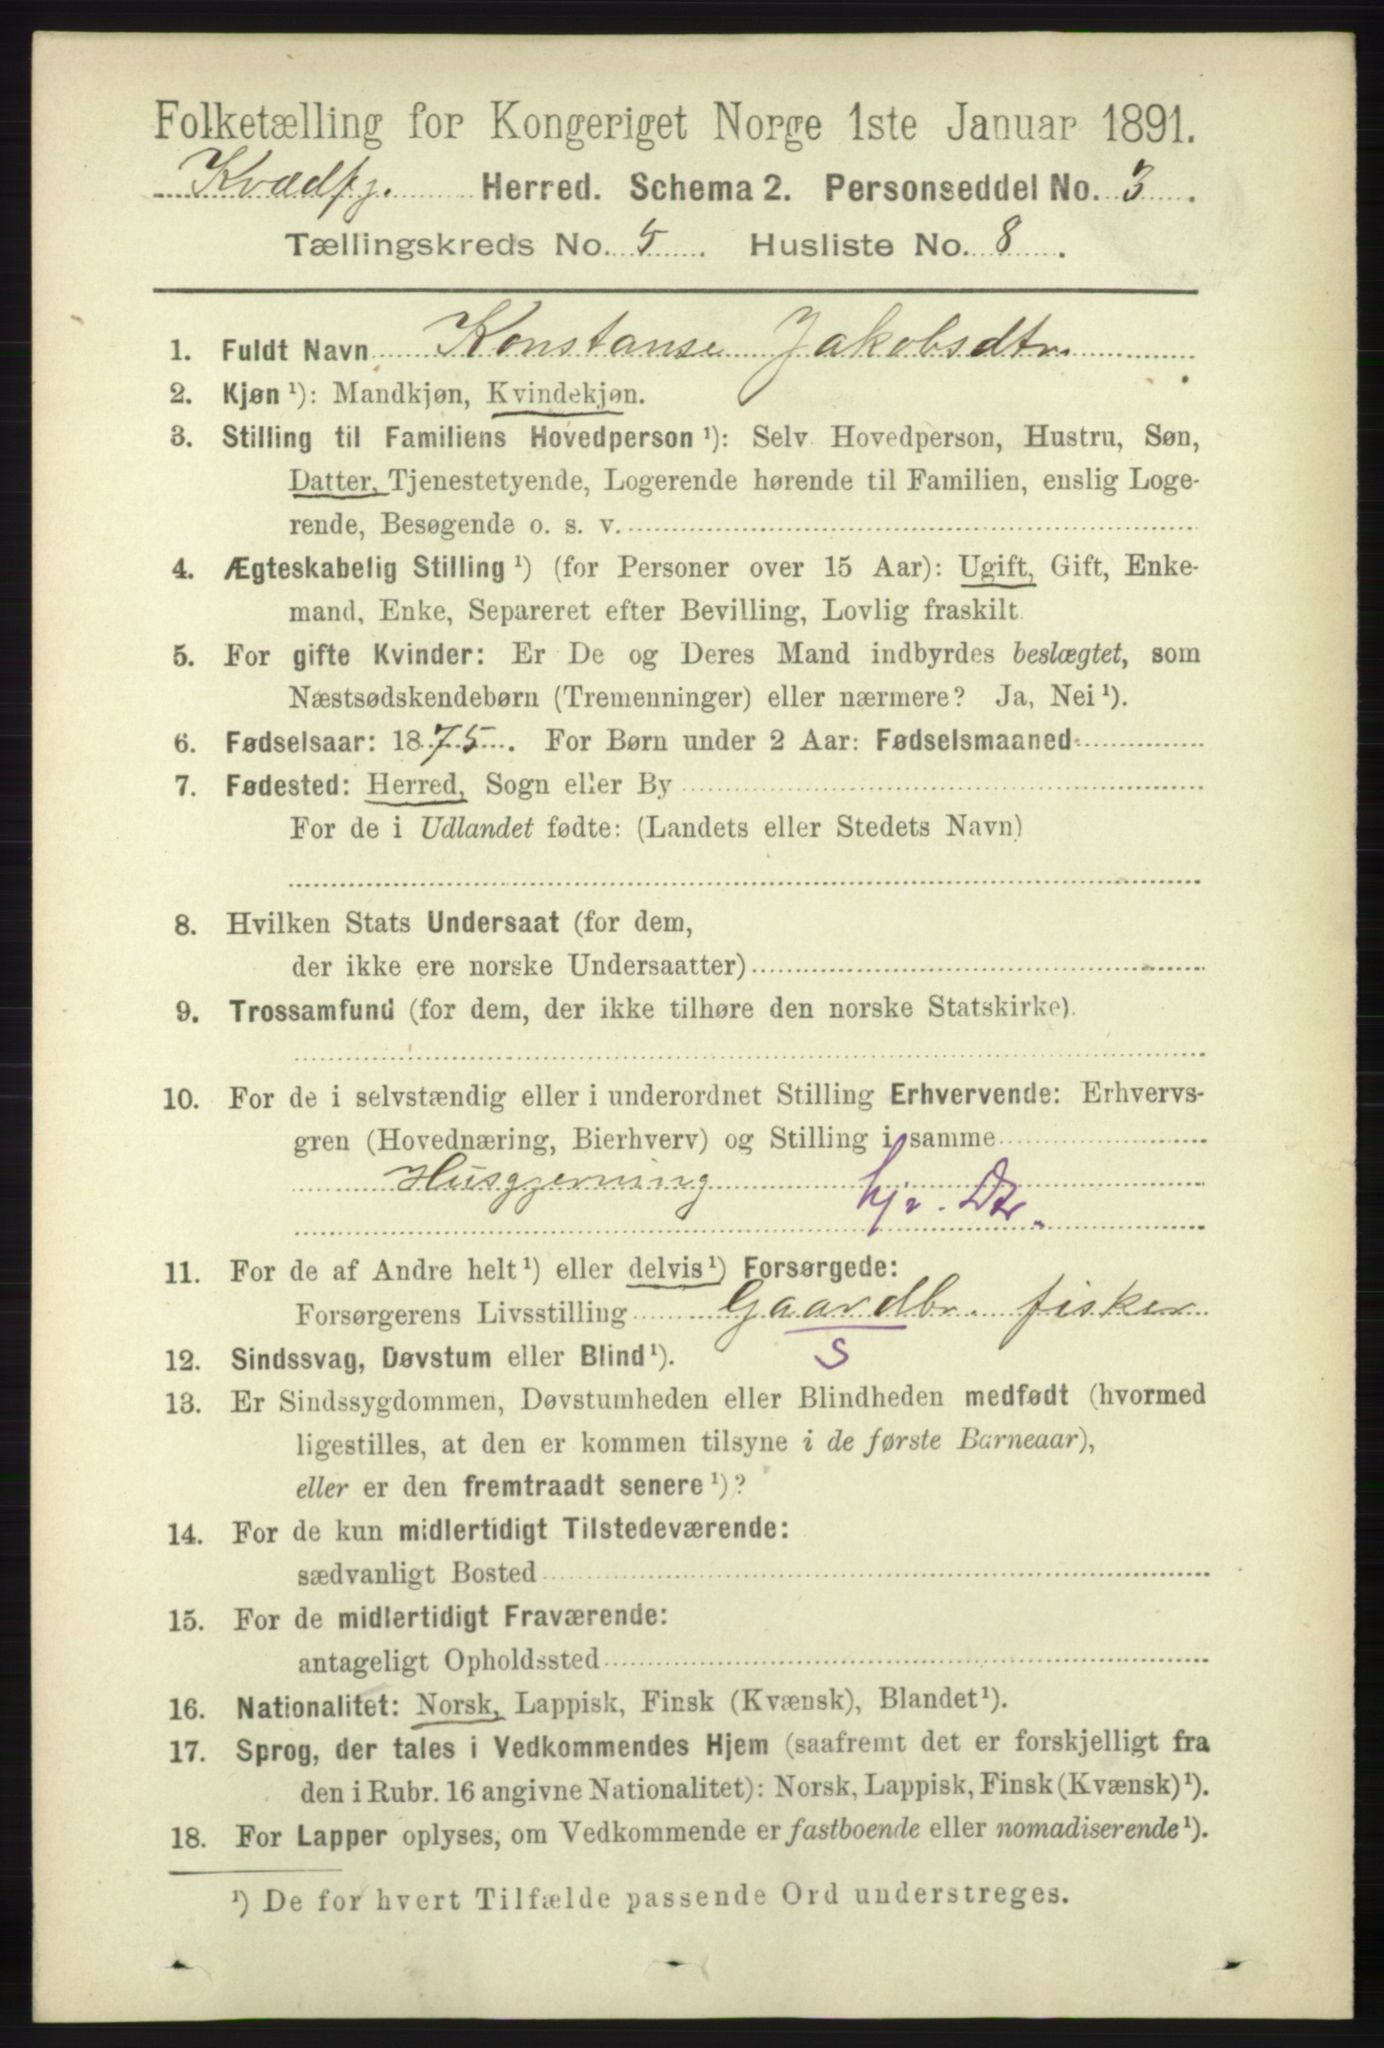 Folketælling for Kongeriget Norge 1ste Januar 1891.
Kvædfj. Herred. Schema 2. Personseddel No. 3.
Tællingskreds No. 5. Husliste No. 8.
1. Fuldt Navn Konstanse Jakobsdtr.
2. Kjøn¹): Mandkjøn, Kvindekjøn.
3. Stilling til Familiens Hovedperson¹): Selv Hovedperson, Hustru, Søn,
Datter, Tjenestetyende, Logerende hørende til Familien, enslig Loge-
rende, Besøgende o. s. v.
4. Ægteskabelig Stilling¹) (for Personer over 15 Aar): Ugift, Gift, Enke-
mand, Enke, Separeret efter Bevilling, Lovlig fraskilt.
5. For gifte Kvinder: Er De og Deres Mand indbyrdes beslægtet, som
Næstsødskendebørn (Tremenninger) eller nærmere? Ja, Nei¹).
6. Fødselsaar: 1875. For Børn under 2 Aar: Fødselsmaaned
7. Fødested: Herred, Sogn eller By
For de i Udlandet fødte: (Landets eller Stedets Navn)
8. Hvilken Stats Undersaat (for dem,
der ikke ere norske Undersaatter)
9. Trossamfund (for dem, der ikke tilhøre den norske Statskirke).
10. For de i selvstændig eller i underordnet Stilling Erhvervende: Erhvervs-
gren (Hovednæring, Bierhverv) og Stilling i samme
Husgjerning hjr. Dtr.
11. For de af Andre helt¹) eller delvis¹) Forsørgede:
Forsørgerens Livsstilling Gaardbr. fisker
S
12. Sindssvag, Døvstum eller Blind¹).
13. Er Sindssygdommen, Døvstumheden eller Blindheden medfødt (hvormed
ligestilles, at den er kommen tilsyne i de første Barneaar),
eller er den fremtraadt senere¹)?
14. For de kun midlertidigt Tilstedeværende:
sædvanligt Bosted
15. For de midlertidigt Fraværende:
antageligt Opholdssted
16. Nationalitet: Norsk, Lappisk, Finsk (Kvænsk), Blandet¹).
17. Sprog, der tales i Vedkommendes Hjem (saafremt det er forskjelligt fra
den i Rubr. 16 angivne Nationalitet): Norsk, Lappisk, Finsk (Kvænsk)¹).
18. For Lapper oplyses, om Vedkommende er fastboende eller nomadiserende¹).
¹) De for hvert Tilfælde passende Ord understreges.